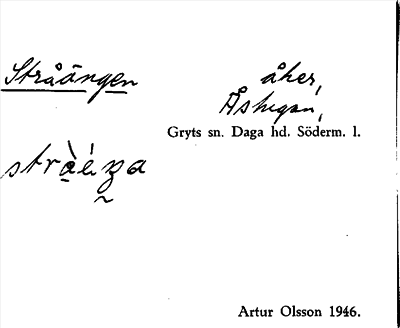 Stråängen
åker,
Åstugan,
Gryts sn. Daga hd. Söderm. l.
Artur Olsson 1946.